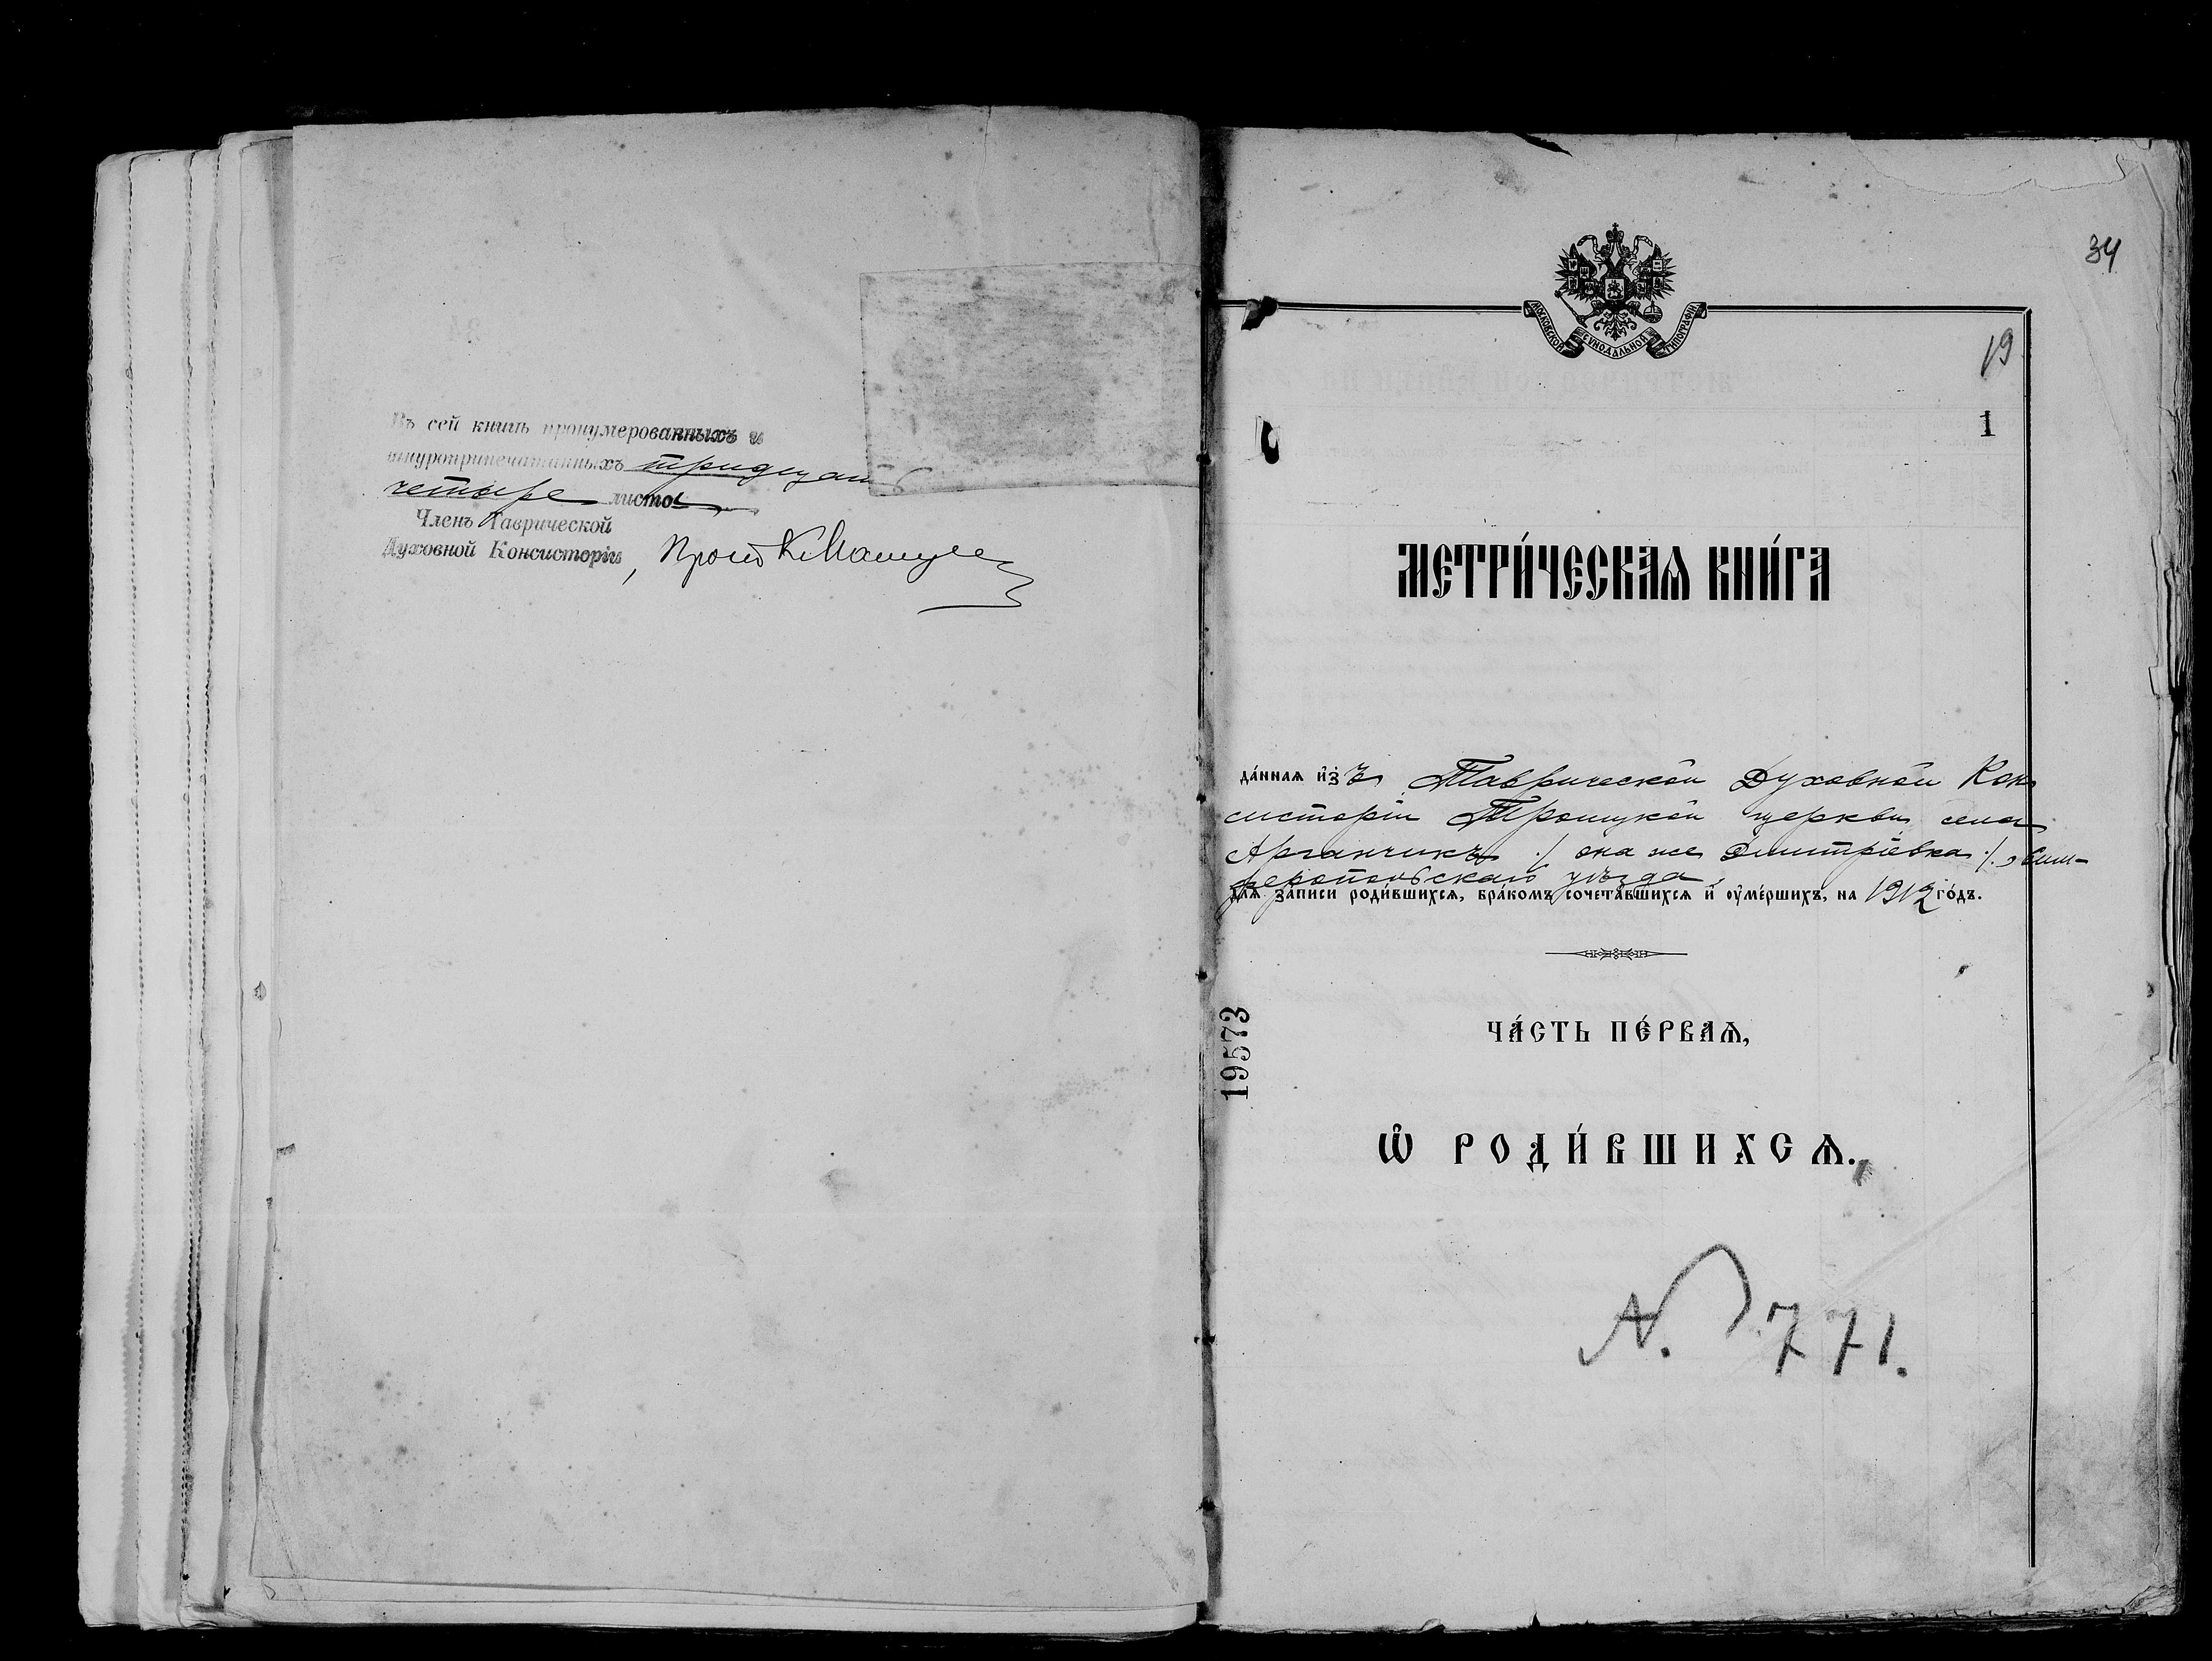 Въ сей книгѣ пронумерованныхъ и
шнуроприпечатанныхъ тридцать
четыре листа
Членъ Таврической
Духовной Консисторіи, Прот К.
34
МОСКОВСКОЙ СѴНОДАЛЬНОЙ ТИПОГРАФІИ
19
1
МЕТРИ́ЧЕСКАѦ КНИ́ГА
да́ннаѧ и҆зъ Таврической Духовной Кон
систоріи Троицкой церкви села
Арганчикъ ./. она же Дмитріевка ./., Сим-
феропольскаго уѣзда
длѧ за́писи роди́вшихсѧ, бра́комъ сочета́вшихсѧ и҆ ᲂу҆ме́ршихъ, на 1912 го́дъ.
ЧА́СТЬ ПЕ́РВАѦ,
Ѽ РОДИ́ВШИХСѦ.
19573
№ 771.